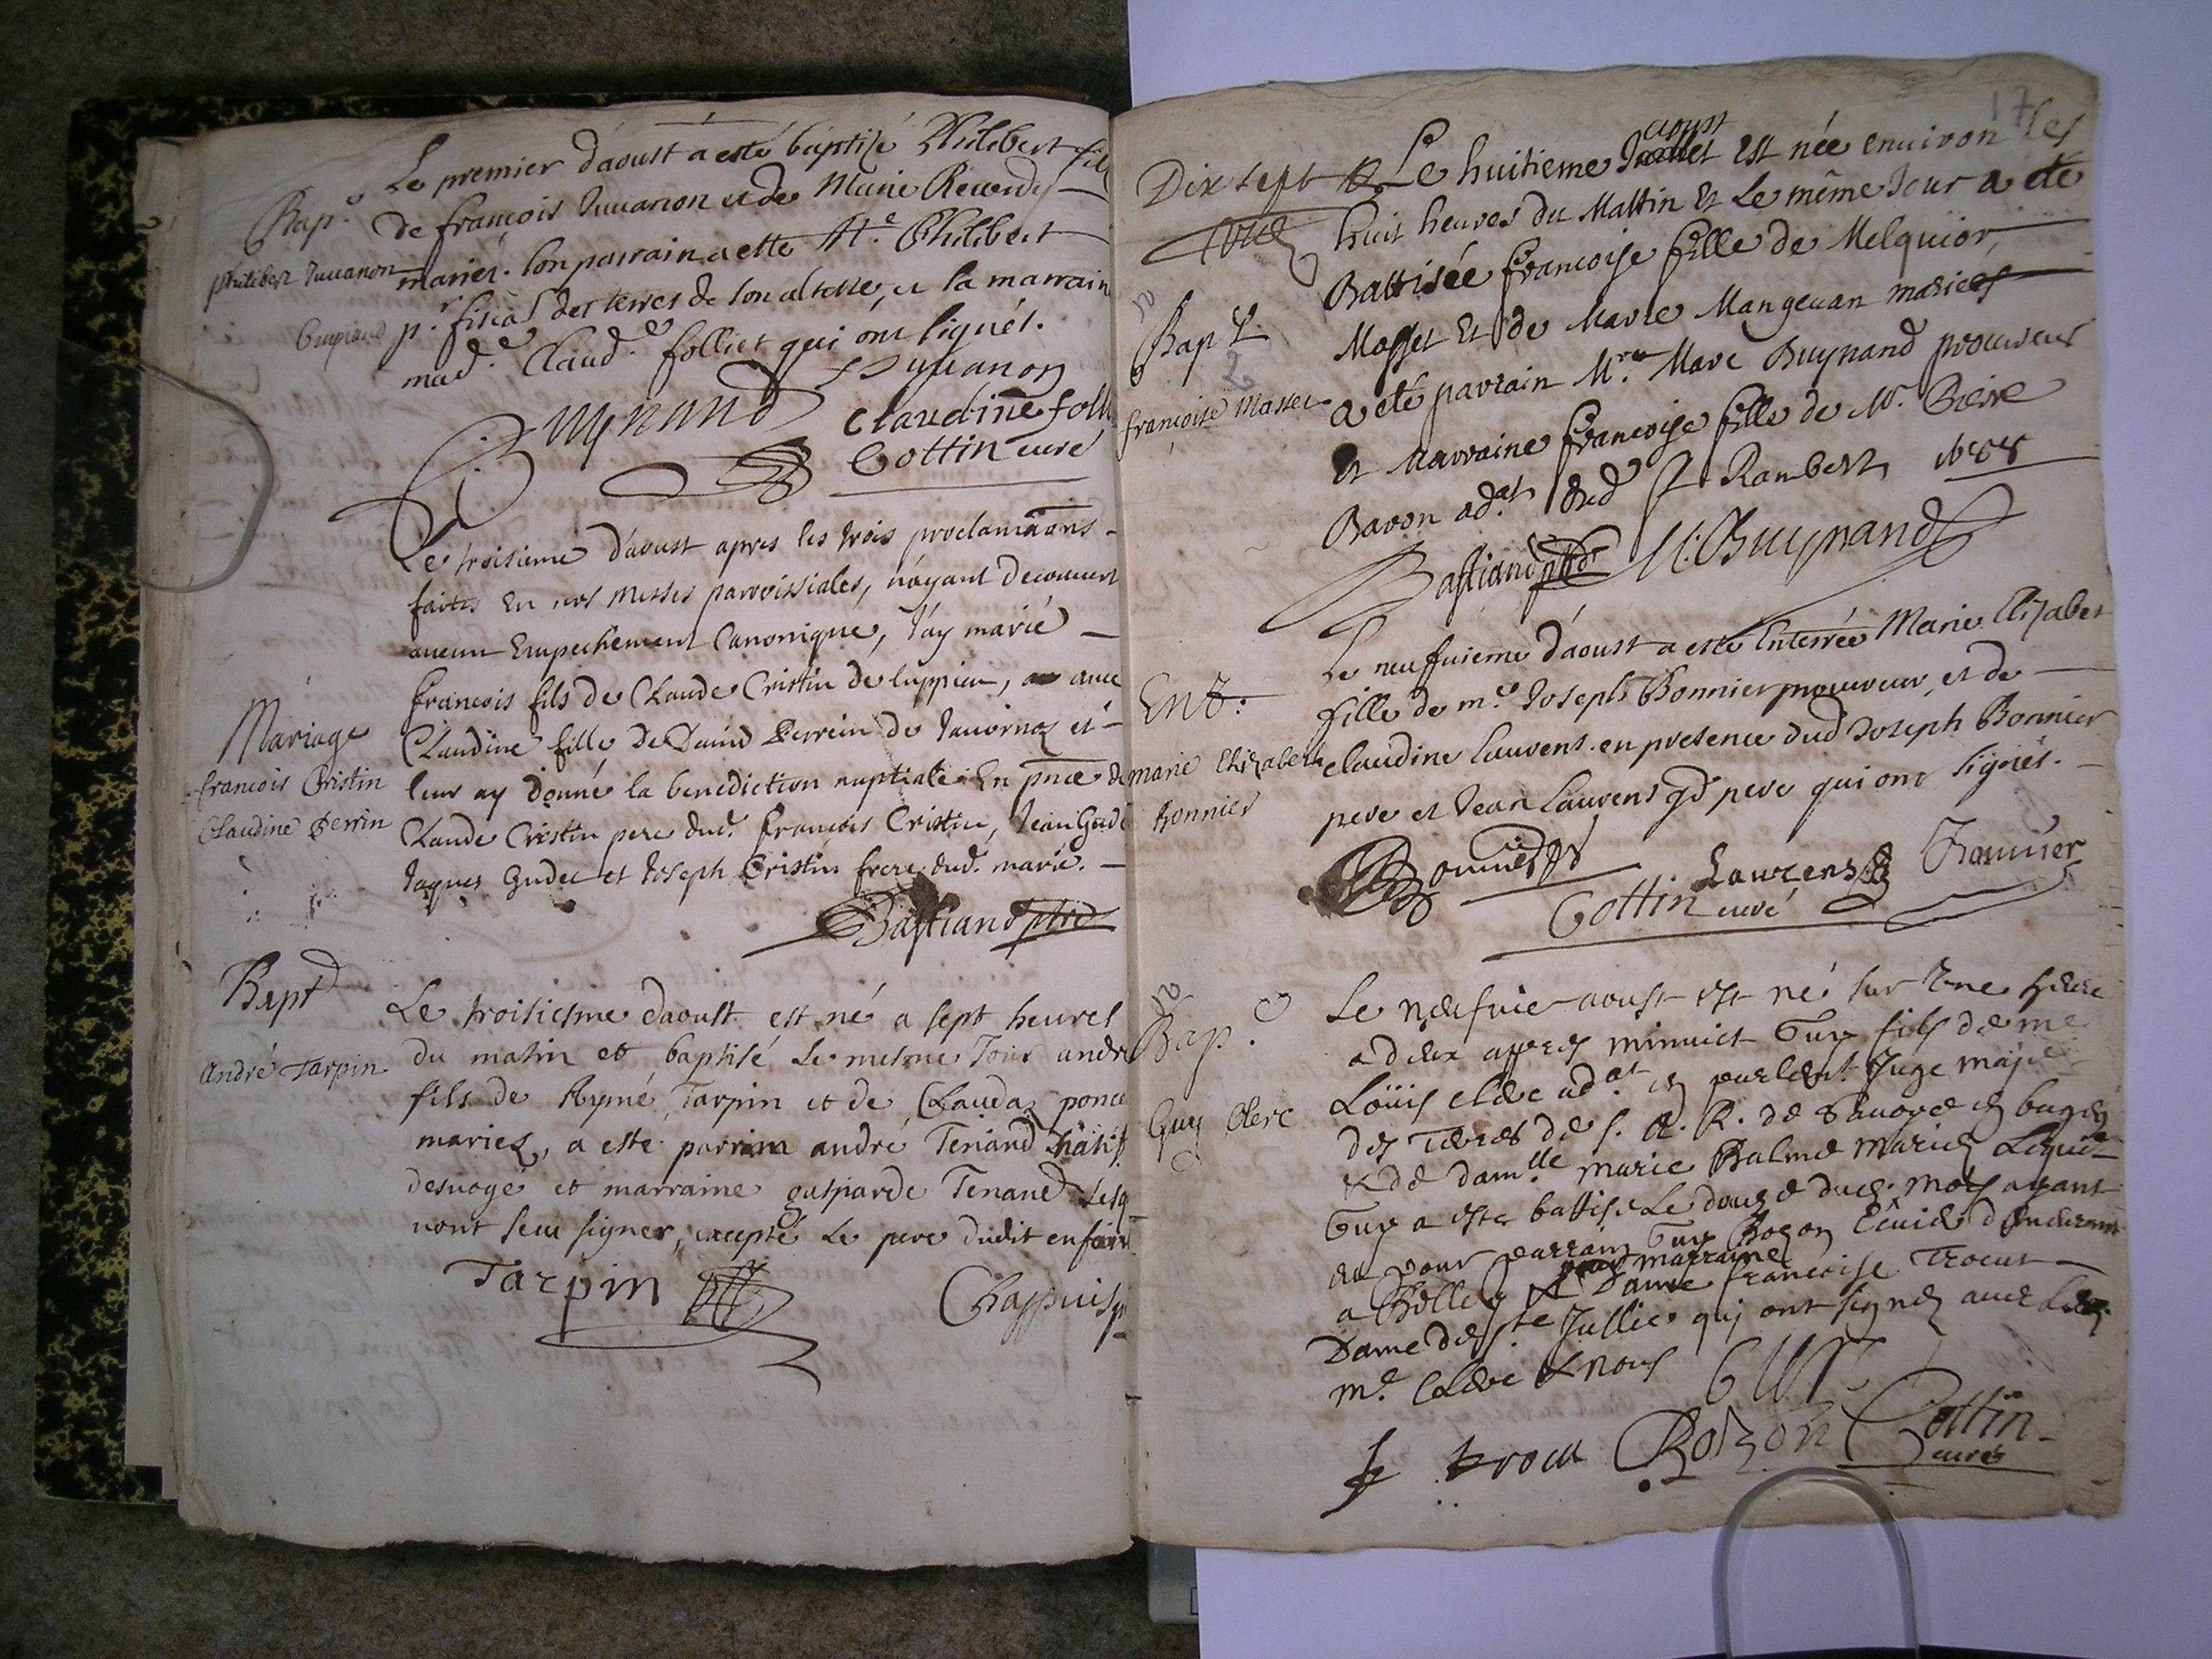 Le premier d'aoust a esté baptisé Philibert fils
Bap.e de françois Juuanon et de Marie Reuerdy
philibert Juuanon mariéz. son parrain a esté M.e Philibert
Buynand p.r fiscal des terres de son altesse, et la marrain
mad.e Claud.e folliet qui ont signés.
Buynand Juuanon
Claudine foll
Cottin curé
Le troisieme d'aoust apres les trois proclamaons
faites En nos Messes parroissiales, n'ayant decouuert
aucun Empechement Canonique, J'ay marié
françois fils de Claude Cristin de luppieu, auec
Mariage
Claudine fille de Dauid Perrin de Jauornoz et
francois Cristin
leur ay donné la benediction nuptiale En pnce de
Claudine Perrin
Claude Cristin pere dud. françois Cristin, Jean
Jaques Gudet et Joseph Cristin frere dud. marié.
Bastiand pbre
Bapt
Le troisiesme daoust est né a sept heures
du matin et baptisé Le mesme Jour andr
André Tarpin
fils de Aymé Tarpin et de Clauda ponce
mariez, a esté parrin andré Tenand
et marraine gasparde Tenand Lesq
nont seu signer, excepté Le pere dudit enfan
Tarpin Chappuis p
17
Dix sept Le huitieme aoust est née enuiron les
huit heures du Mattin Et Le même Jour a été
Battisée françoise fille de Melquior
Bapt.
Masset Et de Marie Mangeuan mariés
2
a eté parrain M.re Marc Buynand procureur
françoise Masset
Et Marraine françoise fille de M.r Pierre
Bavon ad.at dud St Rambert 1688
Bastiand pbr M. Buynand
Le neufuieme d'aoust a esté Enterrée Marie Elizabet
Ent.
fille de m.e Joseph Bonnier procureur, et de
marie Elizabeth
claudine Laurens. en presence dud Joseph Bonnier
Bonnier
pere et Jean Laurens gd pere qui ont signés.
Bonnier Laurens Bonnier
Cottin curé
Le neufuie aoust est né sur Vne heure
Bap.
a deux appres minuict Guy fils de me
Loüis clerc ad.at en parlem.t Juge maje
Guy Clerc
des Terres de S. A. R. de Sauoye en bugey
& de dam.lle marie Balme mariez Lequel
Guy a este battisé Le douze dud. mois ayant
eu pour parrain Guy
pour marraine
a & Dame françoise Trocut
Dame de S.te Jullie qui ont signez auec Led.
m.e Clerc & nous
trocu Cottin
curé